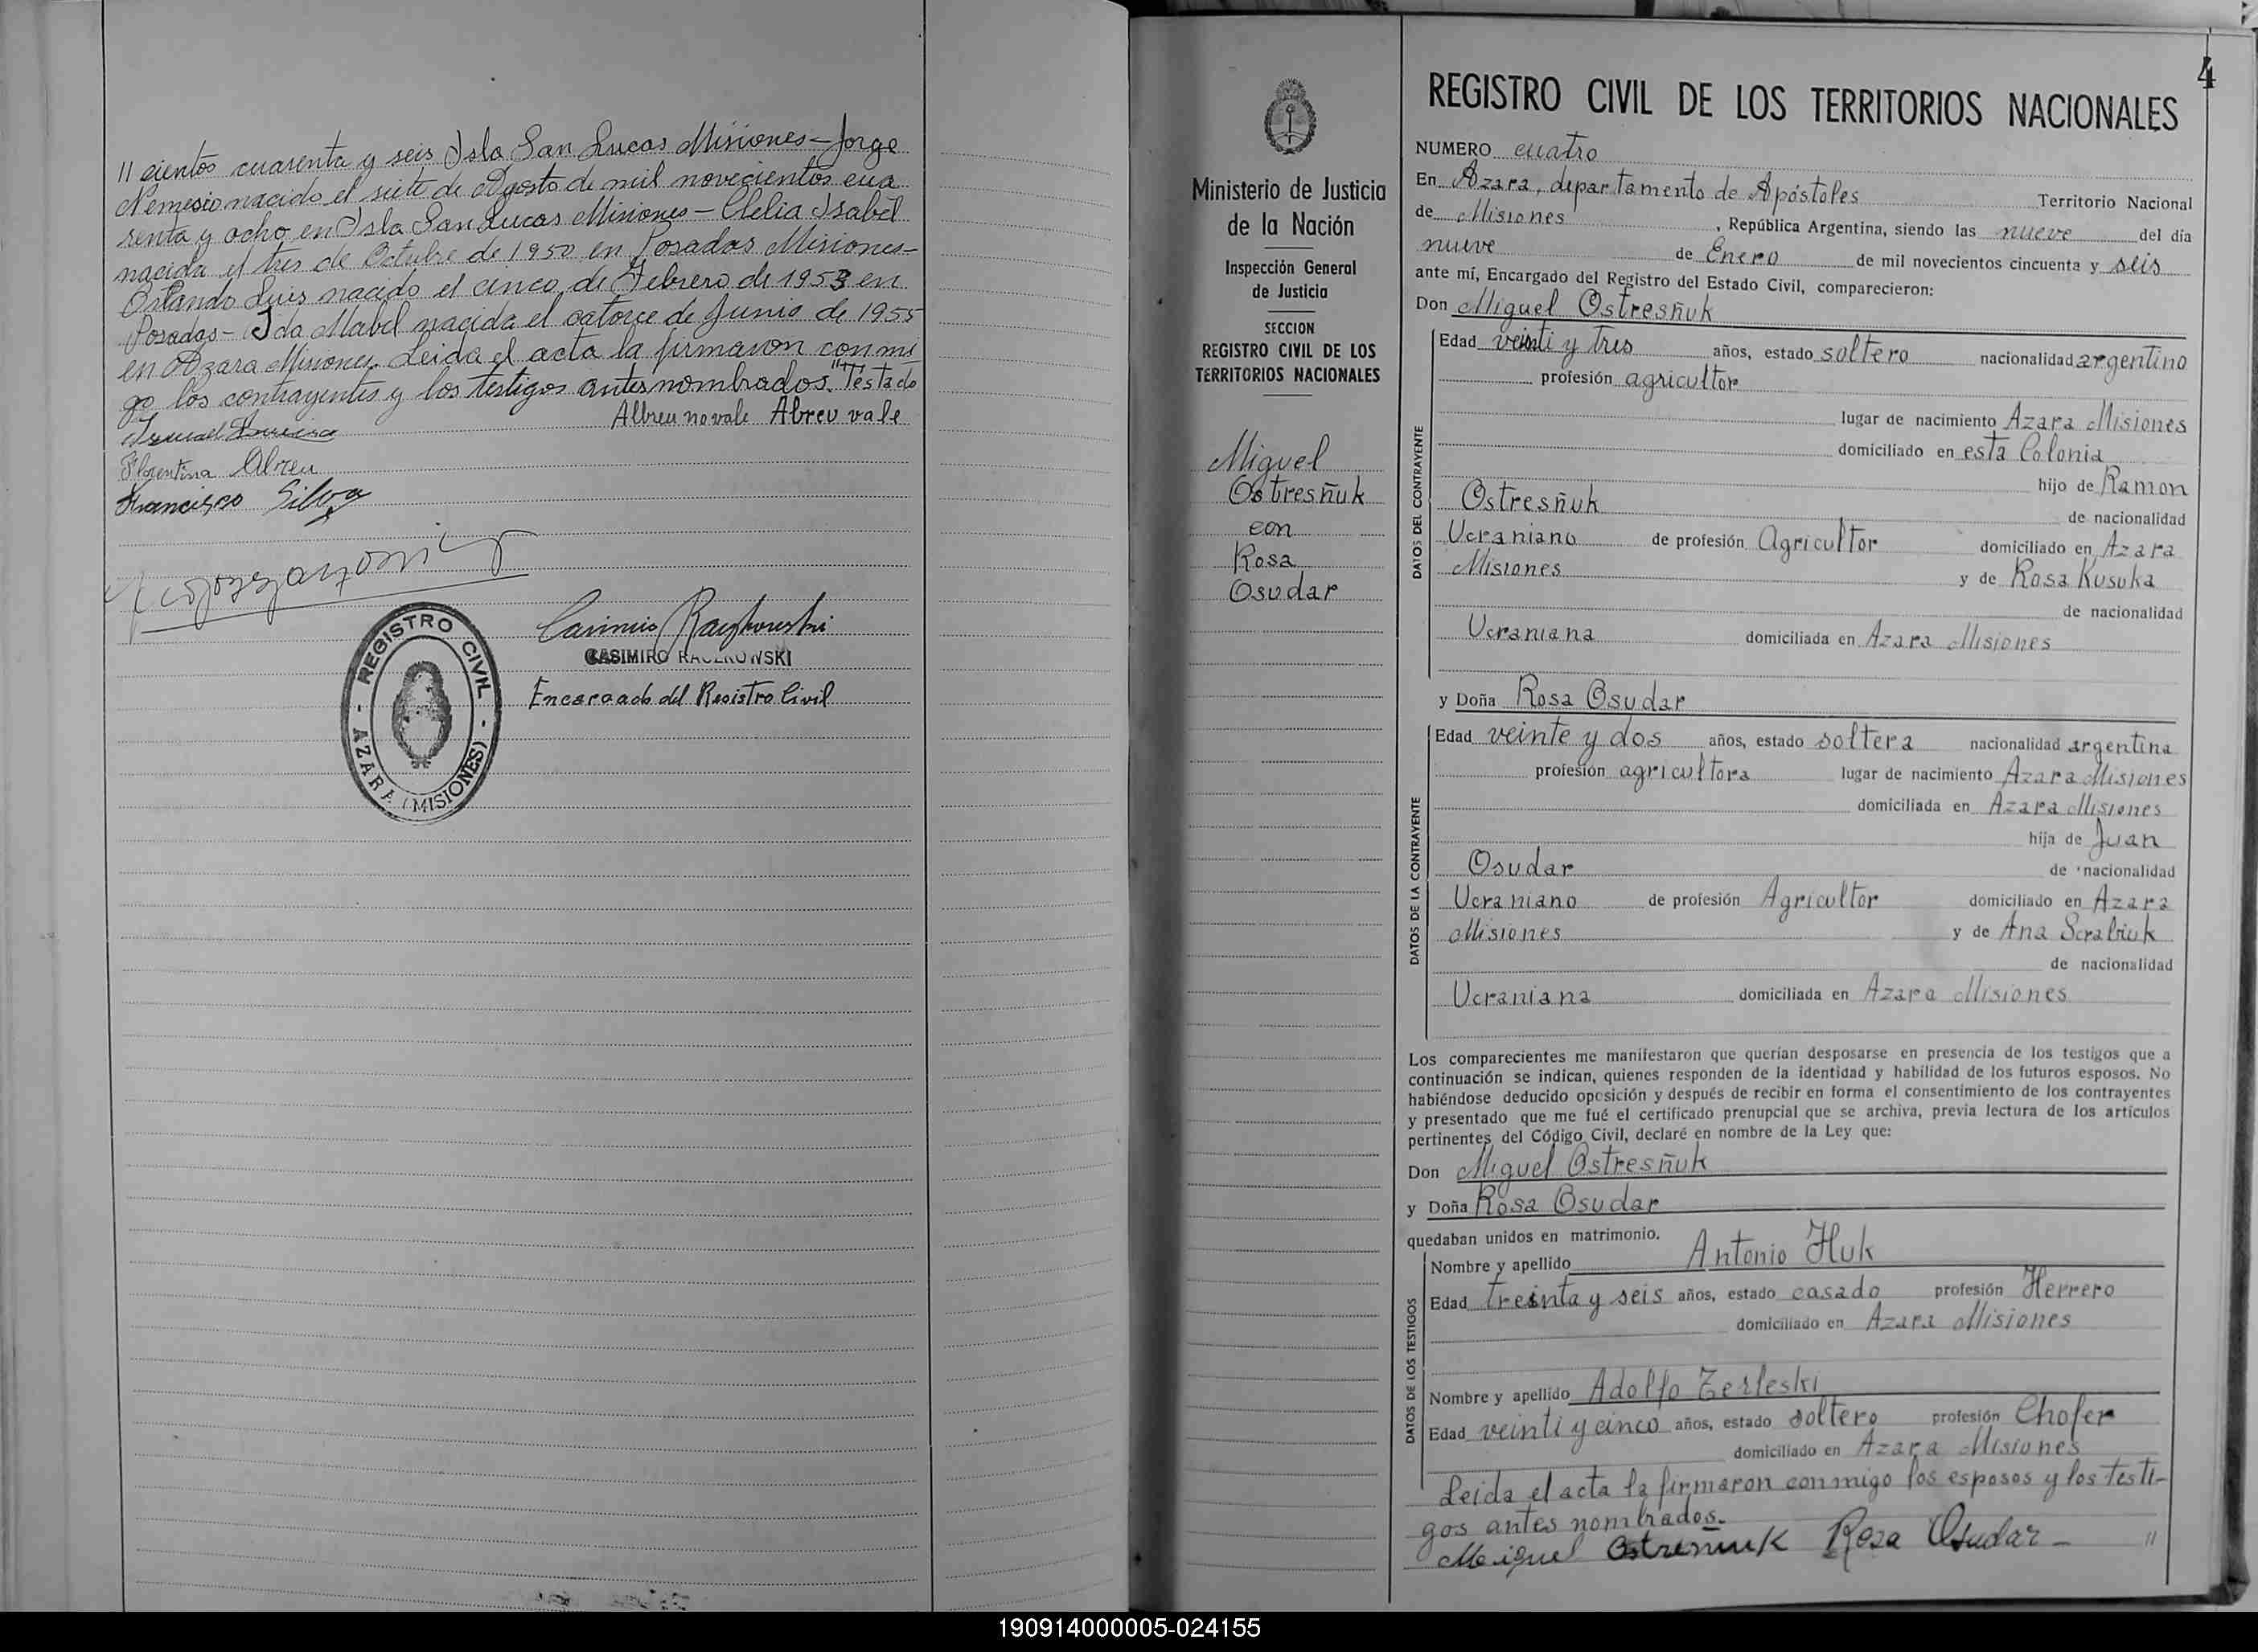 // cientos cuarenta y seis Isla San Lucas Misiones - Jorge
Nemesio nacido el siete de Agosto de mil novecientos cua
renta y ocho en Isla San Lucas Misiones - Clelia Isabel
nacida el tres de Octubre de 1950 en Posadas Misiones -
Orlando Luis nacido el cinco de Febrero de 1953 en
Posadas - Ida Mabel nacida el catorce de Junio de 1955
en Azara Misiones. Leida el acta la firmaron conmi
go los contrayentes y los testigos antes nombrados. Testado
Albreu no vale Abreu vale
Florentina Abreu
Francisco Silva
CASIMIRO RACZKOWSKI
Encargado del Registro Civil
REGISTRO CIVIL - AZARA (MISIONES) -
4
Ministerio de Justicia
de la Nación
Inspección General
de Justicia
SECCION
REGISTRO CIVIL DE LOS
TERRITORIOS NACIONALES
Miguel
Ostresñuk
con
Rosa
Osudar
REGISTRO CIVIL DE LOS TERRITORIOS NACIONALES
NUMERO cuatro
En Azara, departamento de Apóstoles Territorio Nacional
de Misiones, República Argentina, siendo las nueve del día
nueve de Enero de mil novecientos cincuenta y seis
ante mí, Encargado del Registro del Estado Civil, comparecieron:
Don Miguel Ostresñuk
DATOS DEL CONTRAYENTE
Edad veinti y tres años, estado soltero nacionalidad argentino
profesión agricultor
lugar de nacimiento Azara Misiones
domiciliado en esta Colonia
hijo de Ramon
Ostresñuk de nacionalidad
Ucraniano de profesión Agricultor domiciliado en Azara
Misiones y de Rosa Kusuka
de nacionalidad
Ucraniana domiciliada en Azara Misiones
y Doña Rosa Osudar
DATOS DE LA CONTRAYENTE
Edad veinte y dos años, estado soltera nacionalidad argentina
profesión agricultora lugar de nacimiento Azara Misiones
domiciliada en Azara Misiones
hija de Juan
Osudar de nacionalidad
Ucraniano de profesión Agricultor domiciliado en Azara
Misiones y de Ana Scrabiuk
de nacionalidad
Ucraniana domiciliada en Azara Misiones
Los comparecientes me manifestaron que querían desposarse en presencia de los testigos que a
continuación se indican, quienes responden de la identidad y habilidad de los futuros esposos. No
habiéndose deducido oposición y después de recibir en forma el consentimiento de los contrayentes
y presentado que me fué el certificado prenupcial que se archiva, previa lectura de los artículos
pertinentes del Código Civil, declaré en nombre de la Ley que:
Don Miguel Ostresñuk
y Doña Rosa Osudar
quedaban unidos en matrimonio.
DATOS DE LOS TESTIGOS
Nombre y apellido Antonio Huk
Edad treinta y seis años, estado casado profesión Herrero
domiciliado en Azara Misiones
Nombre y apellido Adolfo Zerleski
Edad veinti y cinco años, estado soltero profesión Chofer
domiciliado en Azara Misiones
Leida el acta la firmaron conmigo los esposos y los testi-
gos antes nombrados.
Meiguel Ostresñuk Rosa Osudar - //
190914000005-024155